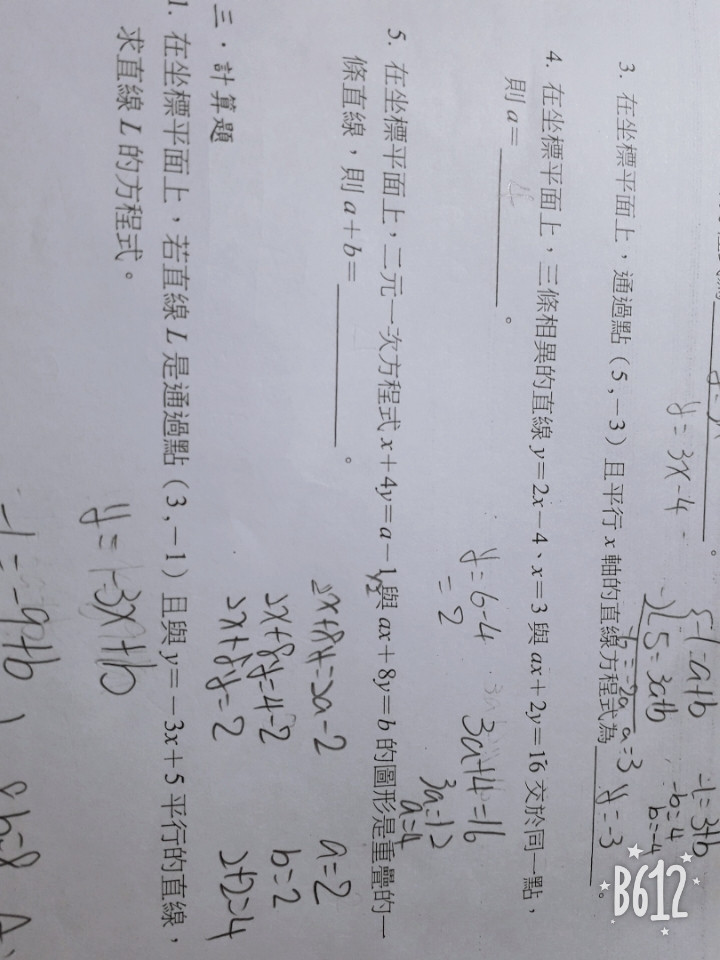 y=3x-4
-1=a+b
5=3a+b
a=3
-1=3+b
-b=4
b=-4
3. 在坐標平面上，通過點（5，-3）且平行 x 軸的直線方程式為 y=-3 。
4. 在坐標平面上，三條相異的直線 y=2x-4、x=3 與 ax+2y=16 交於同一點，
則 a= 4 。
y=6-4
=2
3a+4=16
3a=12
a=4
5. 在坐標平面上，二元一次方程式 x+4y=a-1 與 ax+8y=b 的圖形是重疊的一
條直線，則 a+b= 。
2x+8y=2a-2
2x+8y=4-2
2x+8y=2
a=2
b=2
2+2=4
三、計算題
1. 在坐標平面上，若直線 L 是通過點（3，-1）且與 y=-3x+5 平行的直線，
求直線 L 的方程式。
y=-3x+b
-1=-9+b
b=8
B612